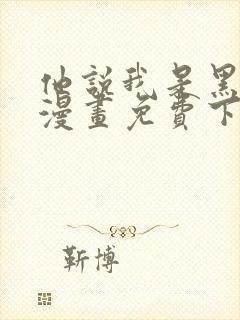 他說我是黑
漫畫免費下
靳博